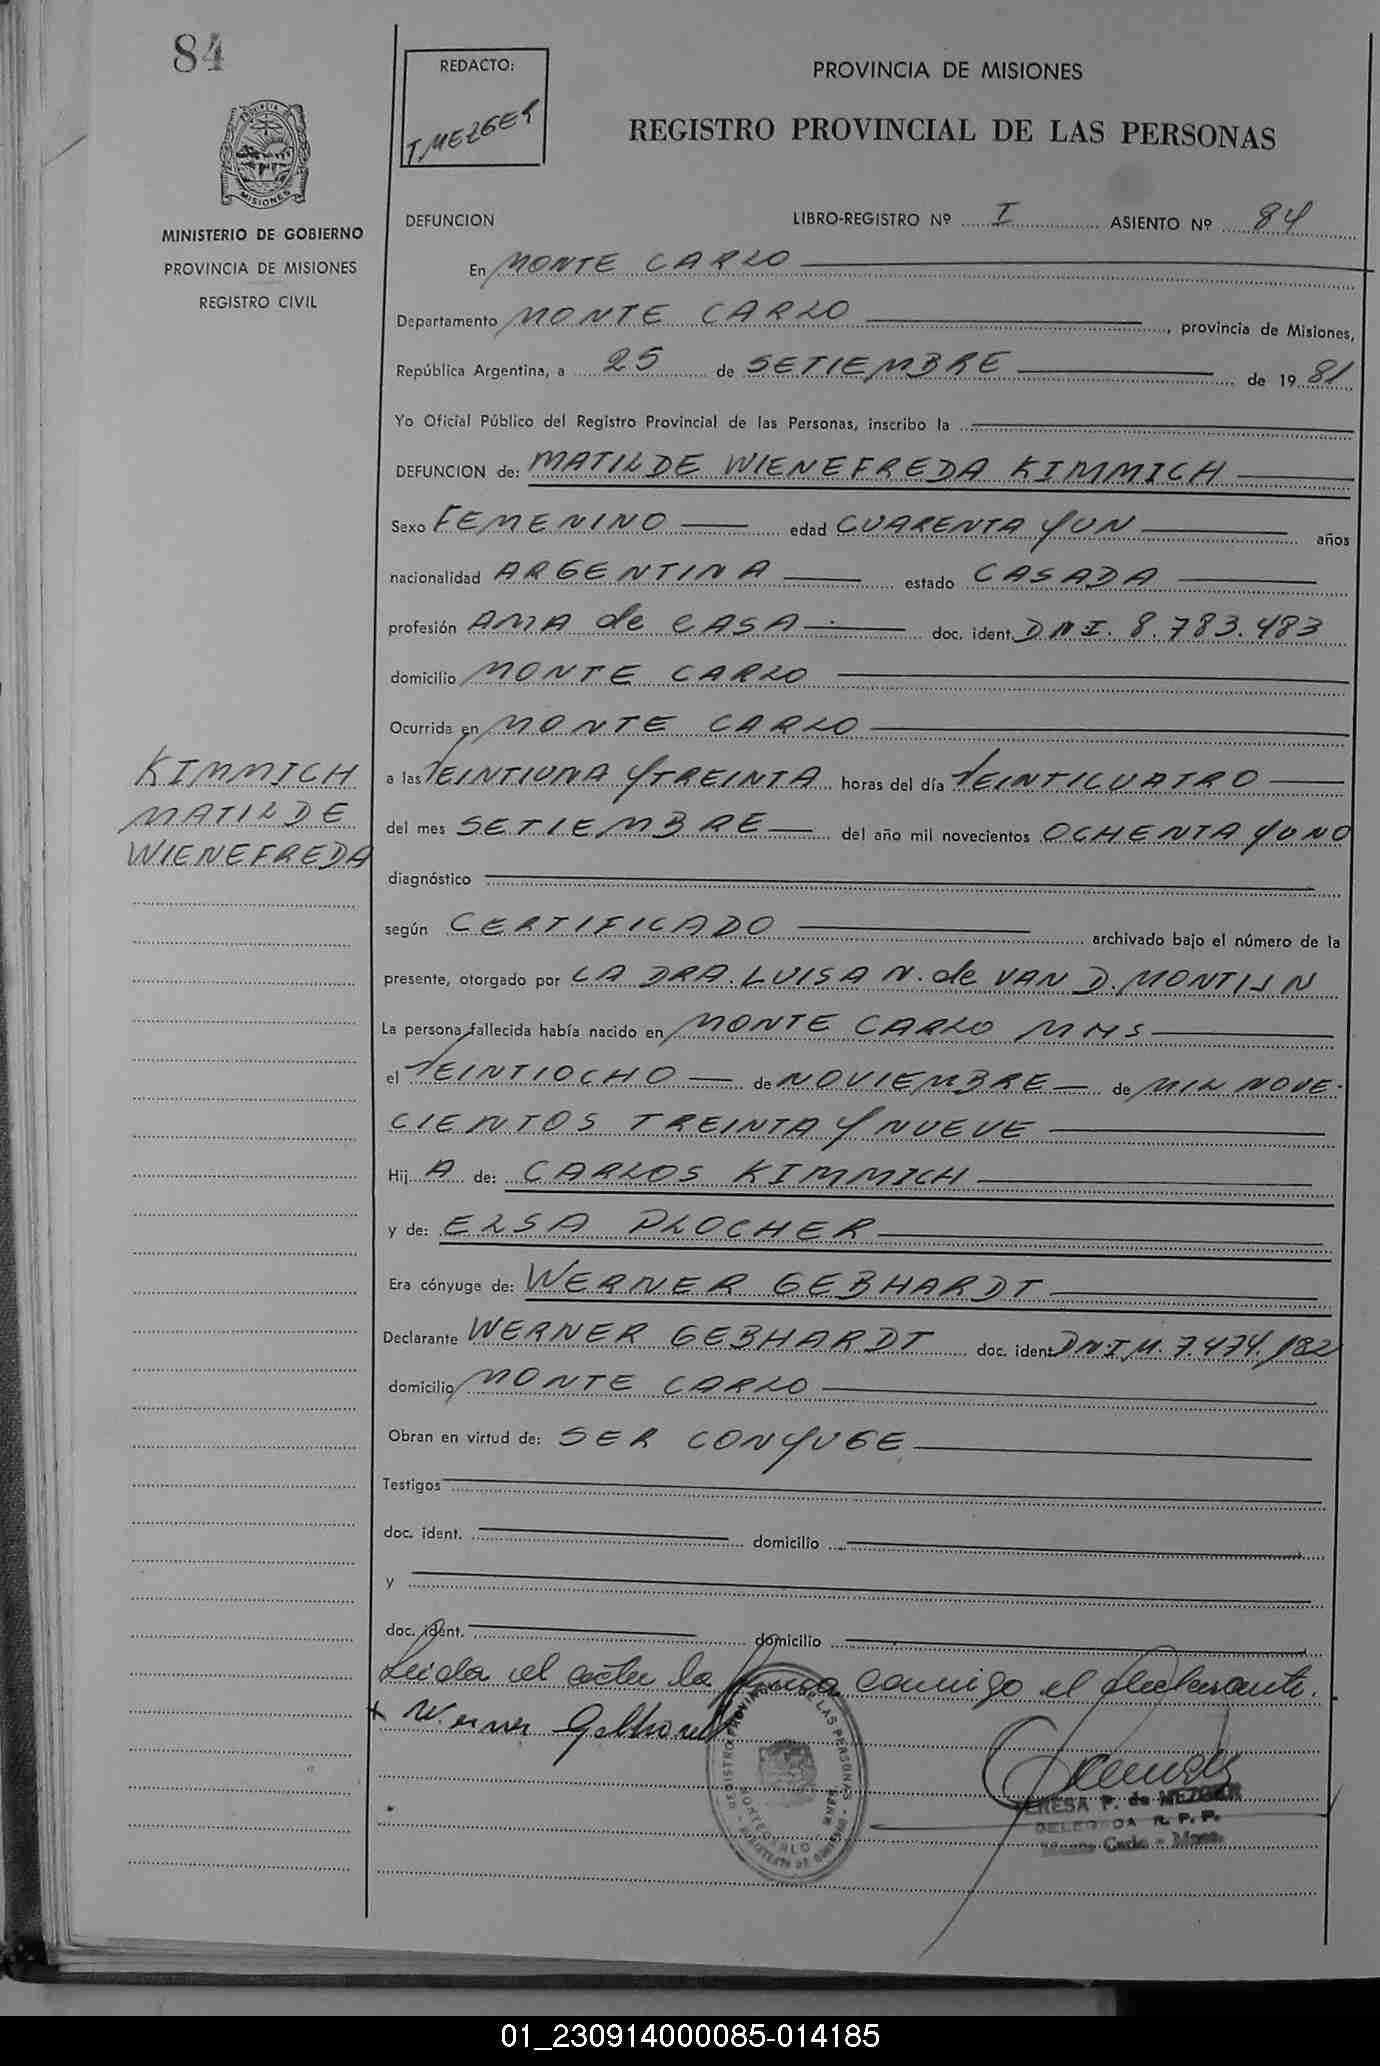 84
REDACTO:
T MEZGER
PROVINCIA DE MISIONES
REGISTRO PROVINCIAL DE LAS PERSONAS
PROVINCIA
MISIONES
MINISTERIO DE GOBIERNO
PROVINCIA DE MISIONES
REGISTRO CIVIL
DEFUNCION
LIBRO-REGISTRO Nº I ASIENTO Nº 84
En MONTE CARLO
Departamento MONTE CARLO, provincia de Misiones,
República Argentina, a 25 de SETIEMBRE de 1981
Yo Oficial Público del Registro Provincial de las Personas, inscribo la
DEFUNCION de: MATILDE WIENEFREDA KIMMICH
Sexo FEMENINO edad CUARENTA Y UN años
nacionalidad ARGENTINA estado CASADA
profesión AMA de CASA doc. ident. DNI. 8.783.483
domicilio MONTE CARLO
Ocurrida en MONTE CARLO
KIMMICH
MATILDE
WIENEFREDA
a las VEINTIUNA Y TREINTA horas del día VEINTICUATRO
del mes SETIEMBRE del año mil novecientos OCHENTA Y UNO
diagnóstico
según CERTIFICADO archivado bajo el número de la
presente, otorgado por LA DRA. LUISA N. de VAN D. MONTIJN
La persona fallecida había nacido en MONTE CARLO MNS
el VEINTIOCHO de NOVIEMBRE de MIL NOVE-
CIENTOS TREINTA Y NUEVE
Hij A de: CARLOS KIMMICH
y de: ELSA PLOCHER
Era cónyuge de: WERNER GEBHARDT
Declarante WERNER GEBHARDT doc. ident DNI M. 7.474.182
domicilio MONTE CARLO
Obran en virtud de: SER CONYUGE
Testigos
doc. ident. domicilio
y
doc. ident. domicilio
Leida el acta la firma conmigo el declarante.
x Werner Gebhardt
REGISTRO PROVINCIAL DE LAS PERSONAS
MONTECARLO - MNES
MINISTERIO DE GOBIERNO
TERESA P. de MEZGER
DELEGADA R. P. P.
Monte Carlo - Mnes.
01_230914000085-014185